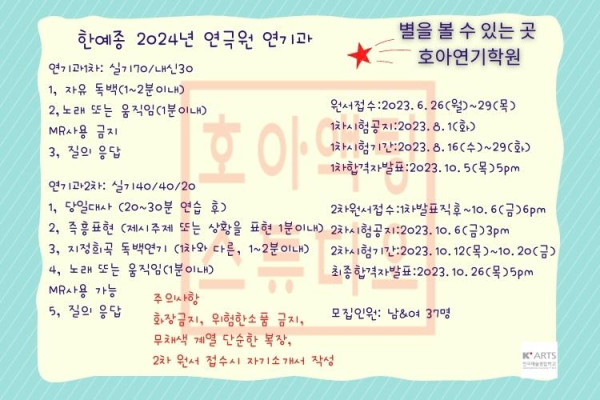 한예종 2024년 연극원 연기과
별을 볼 수 있는 곳
호아연기학원
연기과1차: 실기70/내신30
1, 자유 독백(1~2분이내)
2,노래 또는 움직임(1분이내)
MR사용 금지
3, 질의 응답
원서접수:2023. 6.26(월)~29(목)
1차시험공지:2023. 8.1(화)
1차시험기간:2023. 8.16(수)~29(화)
1차합격자발표:2023. 10.5(목)5pm
연기과2차: 실기40/40/20
1, 당일대사 (20~30분 연습 후)
2, 즉흥표현 (제시주제 또는 상황을 표현 1분이내)
3, 지정희곡 독백연기 (1차와 다른, 1~2분이내)
4, 노래 또는 움직임(1분이내)
MR사용 가능
5, 질의 응답
2차원서접수:1차발표직후~10.6(금)6pm
2차시험공지:2023. 10.6(금)3pm
2차시험기간:2023. 10.12(목)~10.20(금)
최종합격자발표:2023. 10.26(목)5pm
모집인원: 남&여 37명
주의사항
화장금지, 위험한소품 금지,
무채색 계열 단순한 복장,
2차 원서 접수시 자기소개서 작성
호아액팅
스튜디오
K ARTS
한국예술종합학교